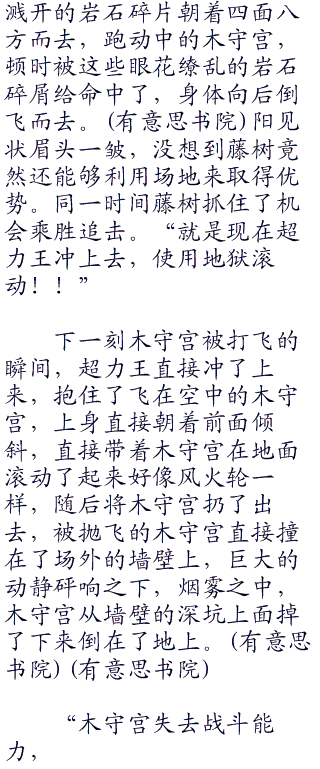 溅开的岩石碎片朝着四面八
方而去，跑动中的木守宫，
顿时被这些眼花缭乱的岩石
碎屑给命中了，身体向后倒
飞而去。(有意思书院)阳见
状眉头一皱，没想到藤树竟
然还能够利用场地来取得优
势。同一时间藤树抓住了机
会乘胜追击。“就是现在超
力王冲上去，使用地狱滚
动！！”
下一刻木守宫被打飞的
瞬间，超力王直接冲了上
来，抱住了飞在空中的木守
宫，上身直接朝着前面倾
斜，直接带着木守宫在地面
滚动了起来好像风火轮一
样，随后将木守宫扔了出
去，被抛飞的木守宫直接撞
在了场外的墙壁上，巨大的
动静砰响之下，烟雾之中，
木守宫从墙壁的深坑上面掉
了下来倒在了地上。(有意思
书院)(有意思书院)
“木守宫失去战斗能
力，